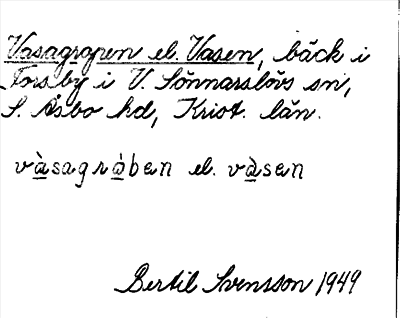 Vasagropen el. Vasen, bäck i
Forsby i V. Sönnarslövs sn,
S. Åsbo hd, Krist. län.
vàsagràben el. vàsen
Bertil Svensson 1949